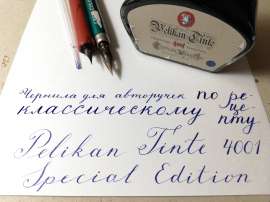 Pelikan Tinte
Чернила для авторучек по ре-
классическому це-
пту
Pelikan Tinte 4001
Special Edition